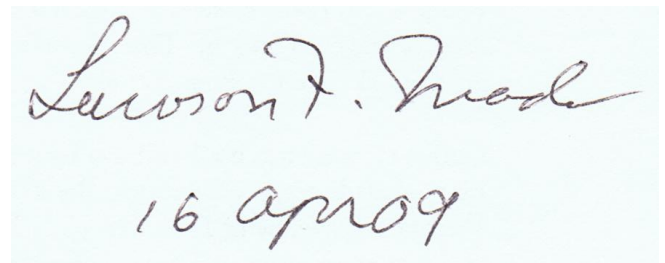 Lawson F.
16 Apr 09